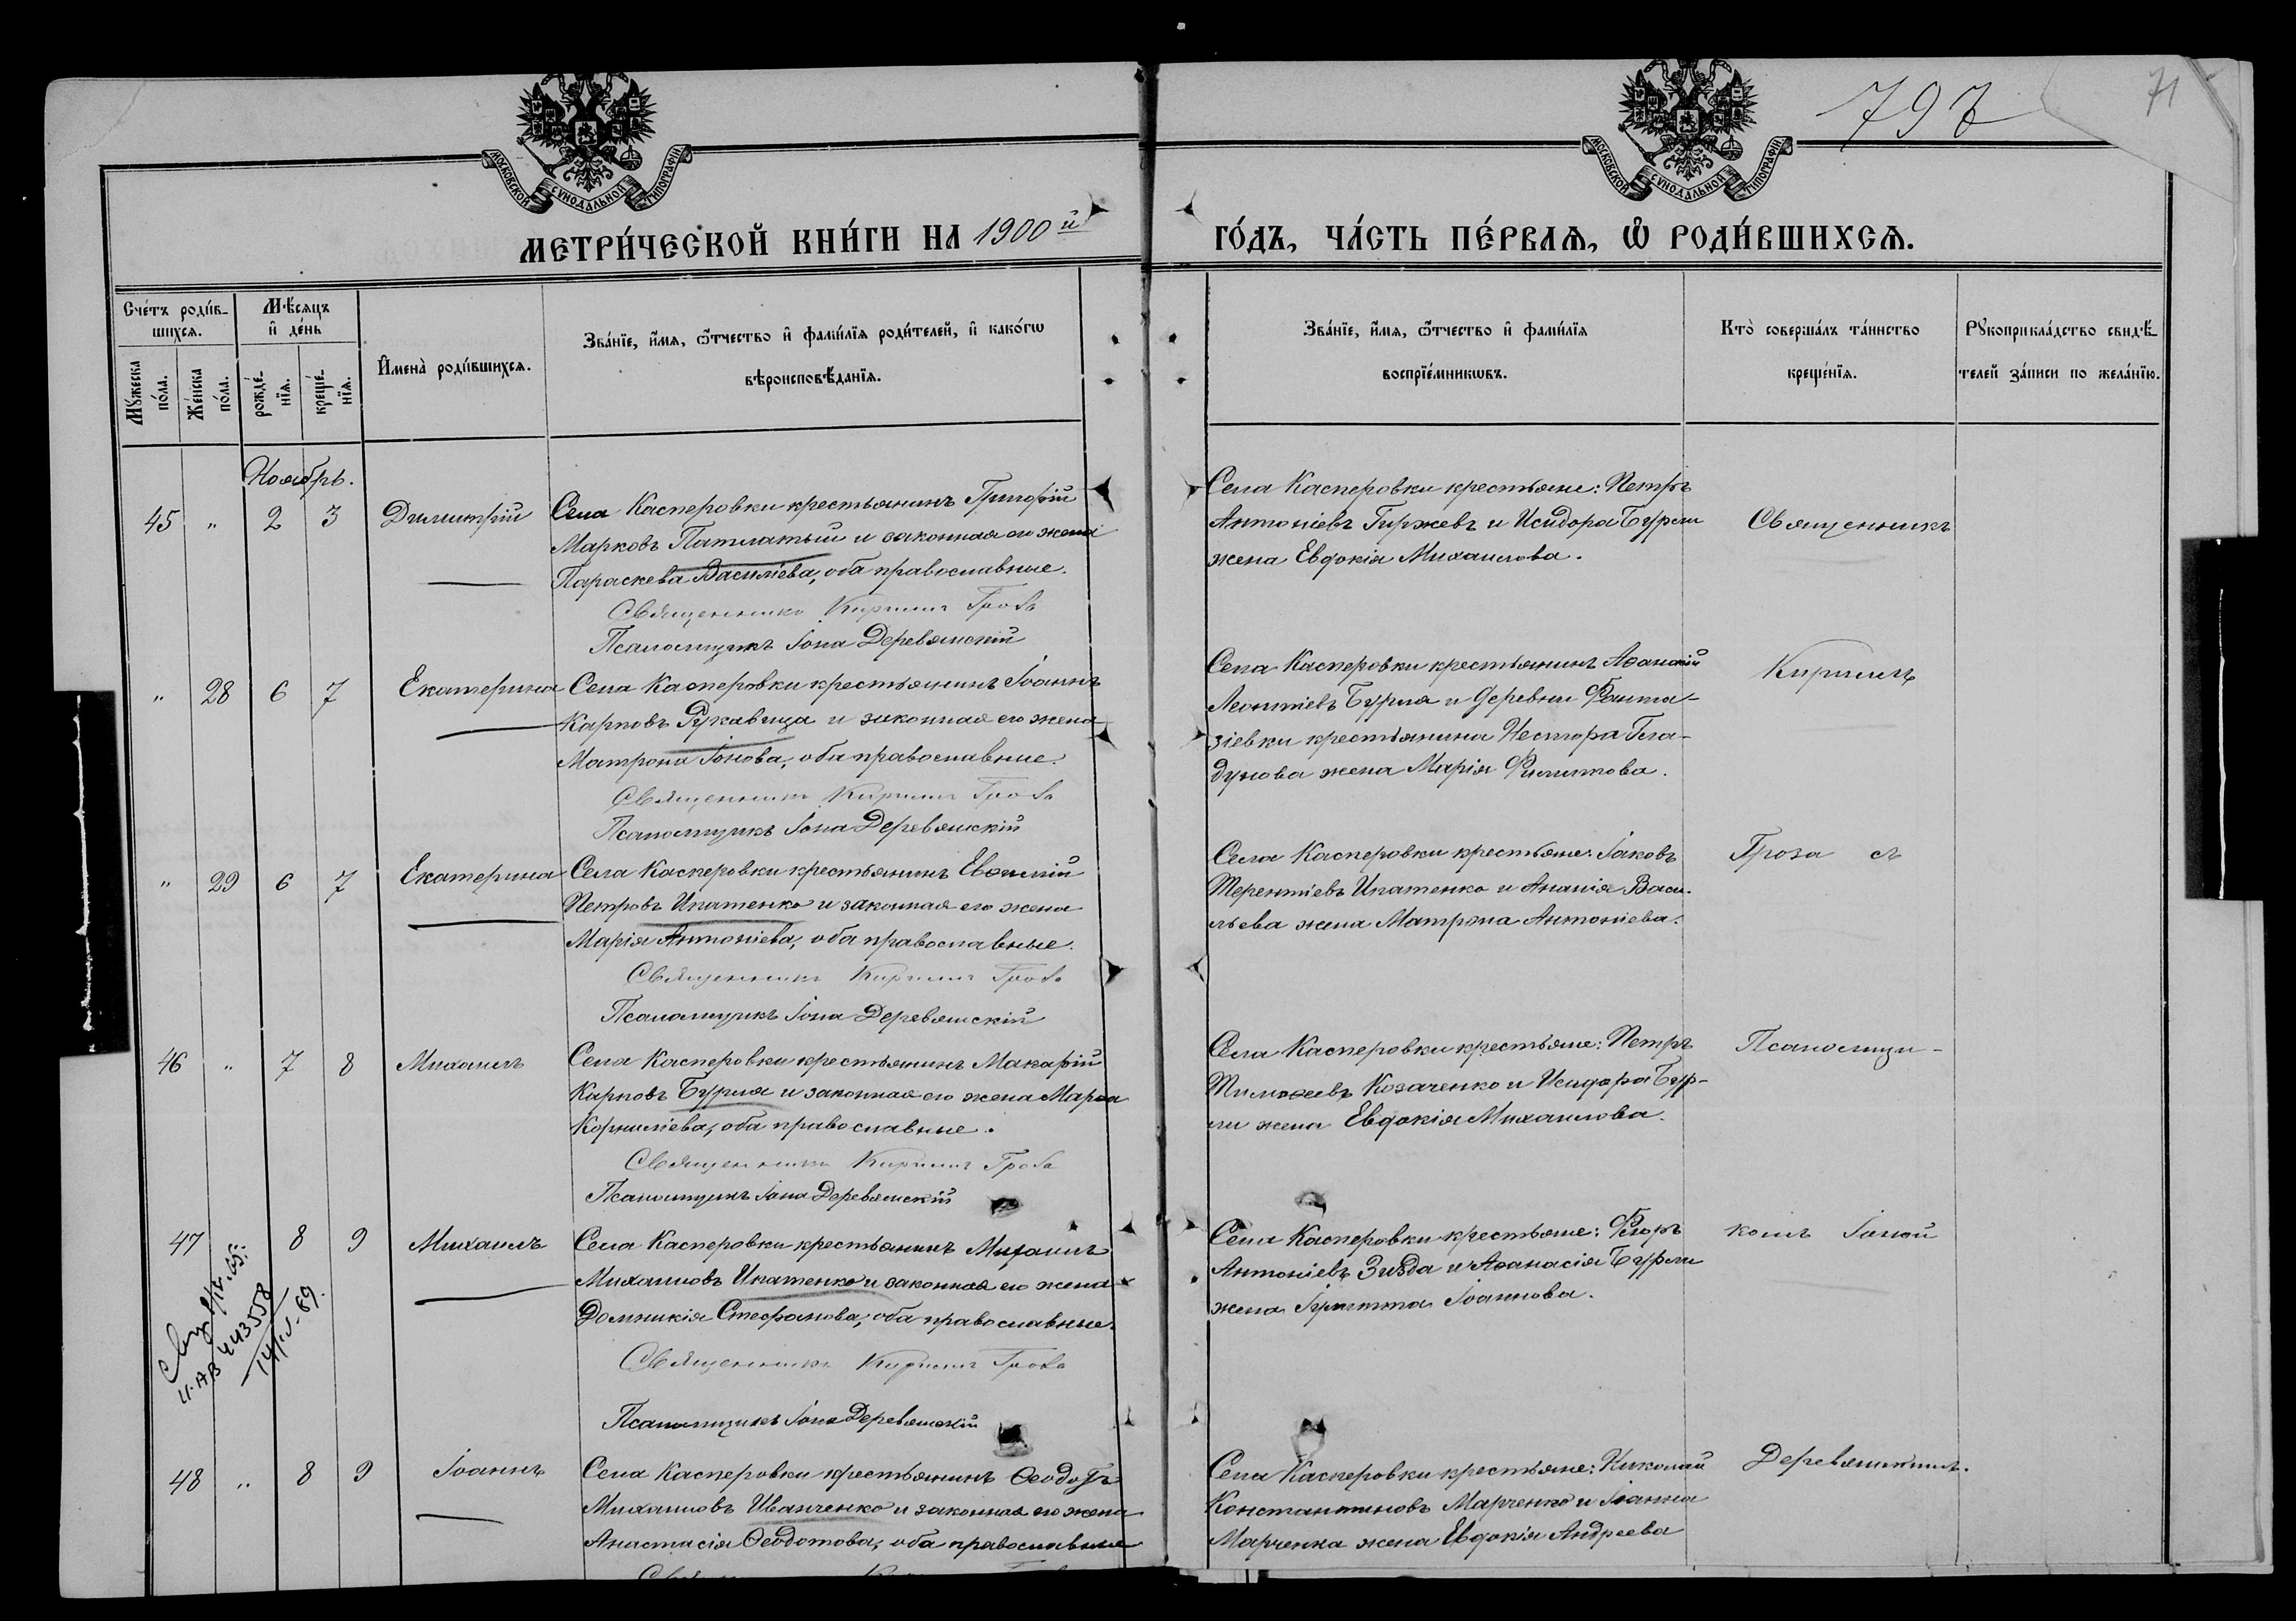 797
71
МОСКОВСКОЙ СѴНОДАЛЬНОЙ ТИПОГРАФІИ
МОСКОВСКОЙ СѴНОДАЛЬНОЙ ТИПОГРАФІИ
МЕТРИ́ЧЕСКОЙ КНИ́ГИ НА 1900й
ГО́ДЪ, ЧА́СТЬ ПЕ́РВАЯ, Ѿ РОДИ́ВШИХСЯ.
Сче́тъ роди́в-
шихся.
Мѣ́сяцъ
и де́нь
Му́жеска
по́ла.
Же́нска
по́ла.
рожде́-
нїя.
креще́-
нїя.
Имена̀ роди́вшихся.
Зва́нїе, и́мя, ѻ́тчество и фами́лїя роди́телей, и како́гѡ
вѣроисповѣ́данїя.
Зва́нїе, и́мя, ѻ́тчество и фами́лїя
воспрїе́мникѡвъ.
Кто̀ соверша́лъ та́инство
креще́нїя.
Рꙋкоприкла́дство свидѣ́-
телей за́писи по жела́нїю.
Ноябрь.
45 " 2 3 Димитрій
Села Касперовки крестьянинъ Григорій
Марковъ Патлатый и законная его жена
Параскева Василіева, оба православные.
Священникъ Кириллъ Гроза
Псаломщикъ Іона Деревянскій
Села Касперовки крестьяне: Петръ
Антоніевъ Гиржевъ и Исидора Бурли
жена Евдокія Михаилова.
Священникъ
" 28 6 7 Екатерина
Села Касперовки крестьянинъ Іоаннъ
Карповъ Рукавица и законная его жена
Матрона Іонова, оба православные.
Священникъ Кириллъ Гроза
Псаломщикъ Іона Деревянскій
Села Касперовки крестьянинъ Аѳанасій
Леонтіевъ Бурля и деревни Фанта-
зіевки крестьянина Нестора Гла-
дунова жена Марія Филиппова.
Кириллъ
" 29 6 7 Екатерина
Села Касперовки крестьянинъ Евѳимій
Петровъ Ипатенко и законная его жена
Марія Антоніева, оба православные.
Священникъ Кириллъ Гроза
Псаломщикъ Іона Деревянскій
Села Касперовки крестьяне: Іаковъ
Терентіевъ Ипатенко и Ананія Васи-
льева жена Матрона Антоніева.
Гроза съ
46 " 7 8 Михаилъ
Села Касперовки крестьянинъ Макарій
Карповъ Бурля и законная его жена Марѳа
Корниліева, оба православные.
Священникъ Кириллъ Гроза
Псаломщикъ Іона Деревянскій
Села Касперовки крестьяне: Петръ
Тимоѳеевъ Козаченко и Исидора Бур-
ли жена Евдокія Михаилова.
Псаломщи-
47 8 9 Михаилъ
Села Касперовки крестьянинъ Михаилъ
Михаиловъ Ипатенко и законная его жена
Домникія Стефанова, оба православные.
Священникъ Кириллъ Гроза
Псаломщикъ Іона Деревянскій
II-АВ 443558
14/V-69.
Села Касперовки крестьяне: Флоръ
Антоніевъ Зизда и Аѳанасія Бурли
жена Іулитта Іоаннова.
комъ Іоной
48 " 8 9 Іоаннъ
Села Касперовки крестьянинъ Ѳеодотъ
Михаиловъ Иванченко и законная его жена
Анастасія Ѳеодотова, оба православные
Села Касперовки крестьяне: Николай
Константиновъ Марченко и Іоанна
Марченка жена Евдокія Андреева
Деревянскимъ.